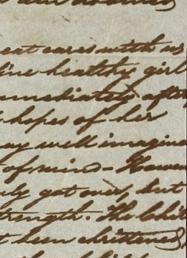 eat cares with us
fine healthy girl
mmediately after
hopes of her
ay well imagine
of mind - Howev
ly got over, but
trength - the Chil
t been christened